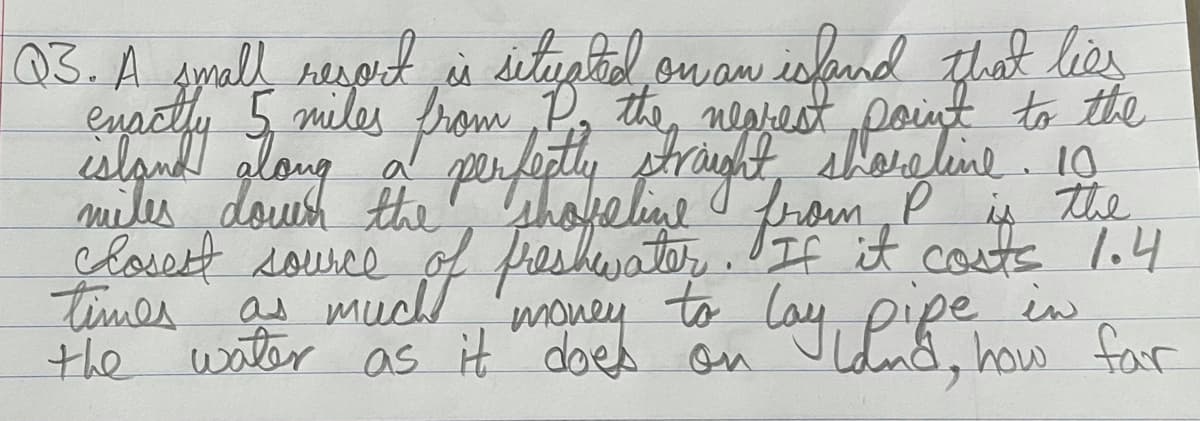 Q3. A small resort is situated on an island that lies
exactly 5 miles from P, the nearest point to the
island along a perfectly straight shoreline. 10
miles down the shoreline from P is the
closest source of freshwater. If it costs 1.4
times as much money to lay pipe in
the water as it does on land, how far